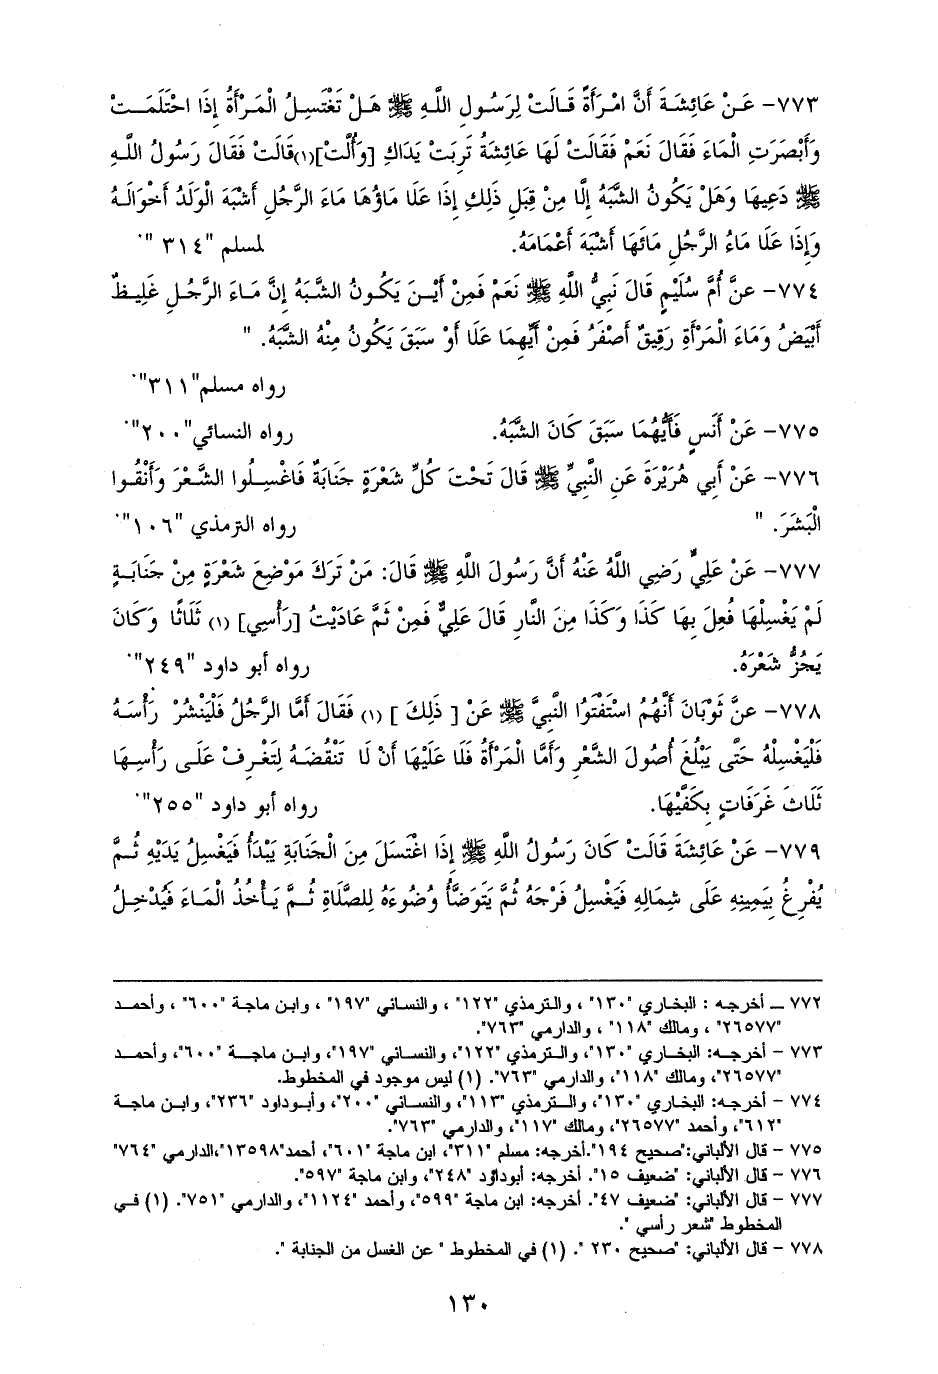 ٧٧٣- عَنْ عَائِشَةَ أَنَّ امْرَأَةً قَالَتْ لِرَسُولِ اللَّهِ ﷺ هَلْ تَغْتَسِلُ الْمَرْأَةُ إِذَا احْتَلَمَتْ
وَأَبْصَرَتِ الْمَاءَ فَقَالَ نَعَمْ فَقَالَتْ لَهَا عَائِشَةُ تَرِبَتْ يَدَاكِ [وَأُلَّتْ](١)قَالَتْ فَقَالَ رَسُولُ اللَّهِ
ﷺ دَعِيهَا وَهَلْ يَكُونُ الشَّبَهُ إِلَّا مِنْ قِبَلِ ذَلِكِ إِذَا عَلَا مَاؤُهَا مَاءَ الرَّجُلِ أَشْبَهَ الْوَلَدُ أَخْوَالَهُ
وَإِذَا عَلَا مَاءُ الرَّجُلِ مَائَهَا أَشْبَهَ أَعْمَامَهُ. لمسلم "٣١٤ ".
٧٧٤- عنَّ أُمَّ سُلَيْمٍ قَالَ نَبِيُّ اللَّهِ ﷺ نَعَمْ فَمِنْ أَيْنَ يَكُونُ الشَّبَهُ إِنَّ مَاءَ الرَّجُلِ غَلِيظٌ
أَبْيَضُ وَمَاءَ الْمَرْأَةِ رَقِيقٌ أَصْفَرُ فَمِنْ أَيِّهِمَا عَلَا أَوْ سَبَقَ يَكُونُ مِنْهُ الشَّبَهُ. "
رواه مسلم"٣١١".
٧٧٥- عَنْ أَنَسٍ فَأَيُّهُمَا سَبَقَ كَانَ الشَّبَهُ. رواه النسائي"٢٠٠".
٧٧٦- عَنْ أَبِي هُرَيْرَةَ عَنِ النَّبِيِّ ﷺ قَالَ تَحْتَ كُلِّ شَعْرَةٍ جَنَابَةٌ فَاغْسِلُوا الشَّعْرَ وَأَنْقُوا
الْبَشَرَ. " رواه الترمذي "١٠٦".
٧٧٧- عَنْ عَلِيٍّ رَضِي اللَّهُ عَنْهُ أَنَّ رَسُولَ اللَّهِ ﷺ قَالَ: مَنْ تَرَكَ مَوْضِعَ شَعْرَةٍ مِنْ جَنَابَةٍ
لَمْ يَغْسِلْهَا فُعِلَ بِهَا كَذَا وَكَذَا مِنَ النَّارِ قَالَ عَلِيٌّ فَمِنْ ثَمَّ عَادَيْتُ [رَأْسِي] (١) ثَلَاثًا وَكَانَ
يَجُزُّ شَعْرَهُ. رواه أبو داود "٢٤٩".
٧٧٨- عنَّ ثَوْبَانَ أَنَّهُمُ اسْتَفْتَوُا النَّبِيَّ ﷺ عَنْ [ ذَلِكَ ] (١) فَقَالَ أَمَّا الرَّجُلُ فَلْيَنْشُرْ رَأْسَهُ
فَلْيَغْسِلْهُ حَتَّى يَبْلُغَ أُصُولَ الشَّعْرِ وَأَمَّا الْمَرْأَةُ فَلَا عَلَيْهَا أَنْ لَا تَنْقُضَهُ لِتَغْرِفْ عَلَى رَأْسِهَا
ثَلَاثَ غَرَفَاتٍ بِكَفَّيْهَا. رواه أبو داود "٢٥٥".
٧٧٩- عَنْ عَائِشَةَ قَالَتْ كَانَ رَسُولُ اللَّهِ ﷺ إِذَا اغْتَسَلَ مِنَ الْجَنَابَةِ يَبْدَأُ فَيَغْسِلُ يَدَيْهِ ثُمَّ
يُفْرِغُ بِيَمِينِهِ عَلَى شِمَالِهِ فَيَغْسِلُ فَرْجَهُ ثُمَّ يَتَوَضَّأُ وُضُوءَهُ لِلصَّلَاةِ ثُمَّ يَأْخُذُ الْمَاءَ فَيُدْخِلُ
٧٧٢ ــ أخرجه : البخاري "١٣٠" ، والترمذي "١٢٢" ، والنسائي "١٩٧" ، وابن ماجة "٦٠٠" ، وأحمد
"٢٦٥٧٧" ، ومالك "١١٨" ، والدارمي "٧٦٣".
٧٧٣ - أخرجه: البخاري "١٣٠"، والترمذي "١٢٢"، والنسائي "١٩٧"، وابن ماجة "٦٠٠"، وأحمد
"٢٦٥٧٧"، ومالك "١١٨"، والدارمي "٧٦٣". (١) ليس موجود في المخطوط.
٧٧٤ - أخرجه: البخاري "١٣٠"، والترمذي "١١٣"، والنسائي "٢٠٠"، وأبوداود "٢٣٦"، وابن ماجة
"٦١٢"، وأحمد "٢٦٥٧٧"، ومالك "١١٧"، والدارمي "٧٦٣".
٧٧٥ - قال الألباني:"صحيح ١٩٤".أخرجه: مسلم "٣١١"، ابن ماجة "٦٠١"، أحمد"١٣٥٩٨"،الدارمي "٧٦٤"
٧٧٦ - قال الألباني: "ضعيف ١٥". أخرجه: أبوداؤد "٢٤٨"، وابن ماجة "٥٩٧".
٧٧٧ - قال الألباني: "ضعيف ٤٧". أخرجه: ابن ماجة "٥٩٩"، وأحمد "١١٢٤"، والدارمي "٧٥١". (١) في
المخطوط "شعر رأسي ".
٧٧٨ - قال الألباني: "صحيح ٢٣٠ ". (١) في المخطوط " عن الغسل من الجنابة ".
١٣٠